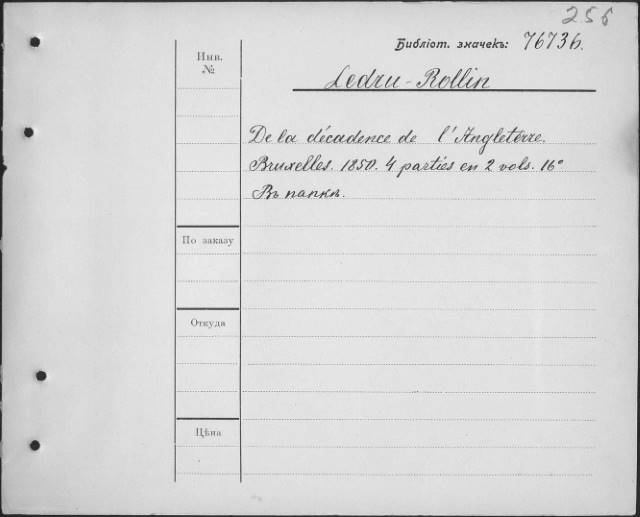 256
Библіот. значекъ: 76736.
Инв.
№
Ledru-Rollin
De la décadence de l'Angleterre.
Bruxelles. 1850. 4 parties en 2 vols. 16°
Въ папкѣ.
По заказу
Откуда
Цѣна